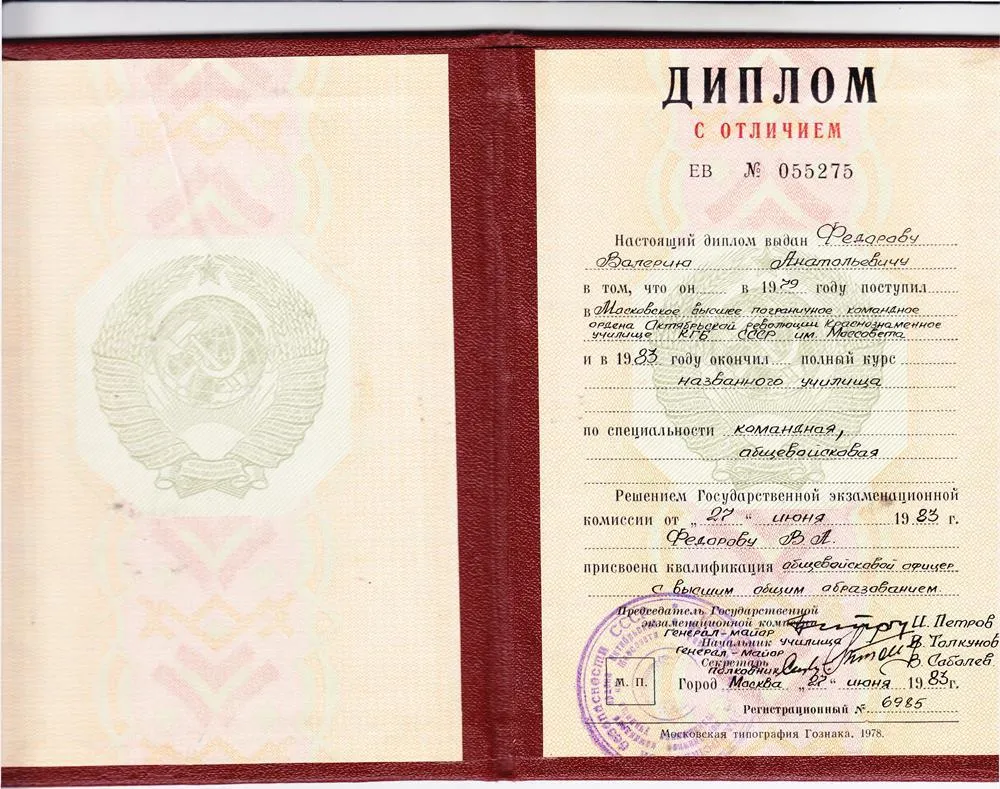 ДИПЛОМ
С ОТЛИЧИЕМ
ЕВ № 055275
Настоящий диплом выдан Федорову
Валерию Анатольевичу
в том, что он в 1979 году поступил
в Московское высшее пограничное командное
ордена Октябрьской революции Краснознаменное
училище КГБ СССР им. Моссовета
и в 1983 году окончил полный курс
названного училища
по специальности командная,
общевойсковая
Решением Государственной экзаменационной
комиссии от „27“ июня 1983 г.
Федорову В А.
присвоена квалификация общевойсковой офицер
с высшим общим образованием
Председатель Государственной
экзаменационной комиссии
генерал-майор Ц. Петров
Начальник училища
генерал-майор В. Толкунов
Секретарь
полковник В. Соболев
М. П.
Город Москва „27“ июня 1983г.
Регистрационный № 6985
Московская типография Гознака. 1978.